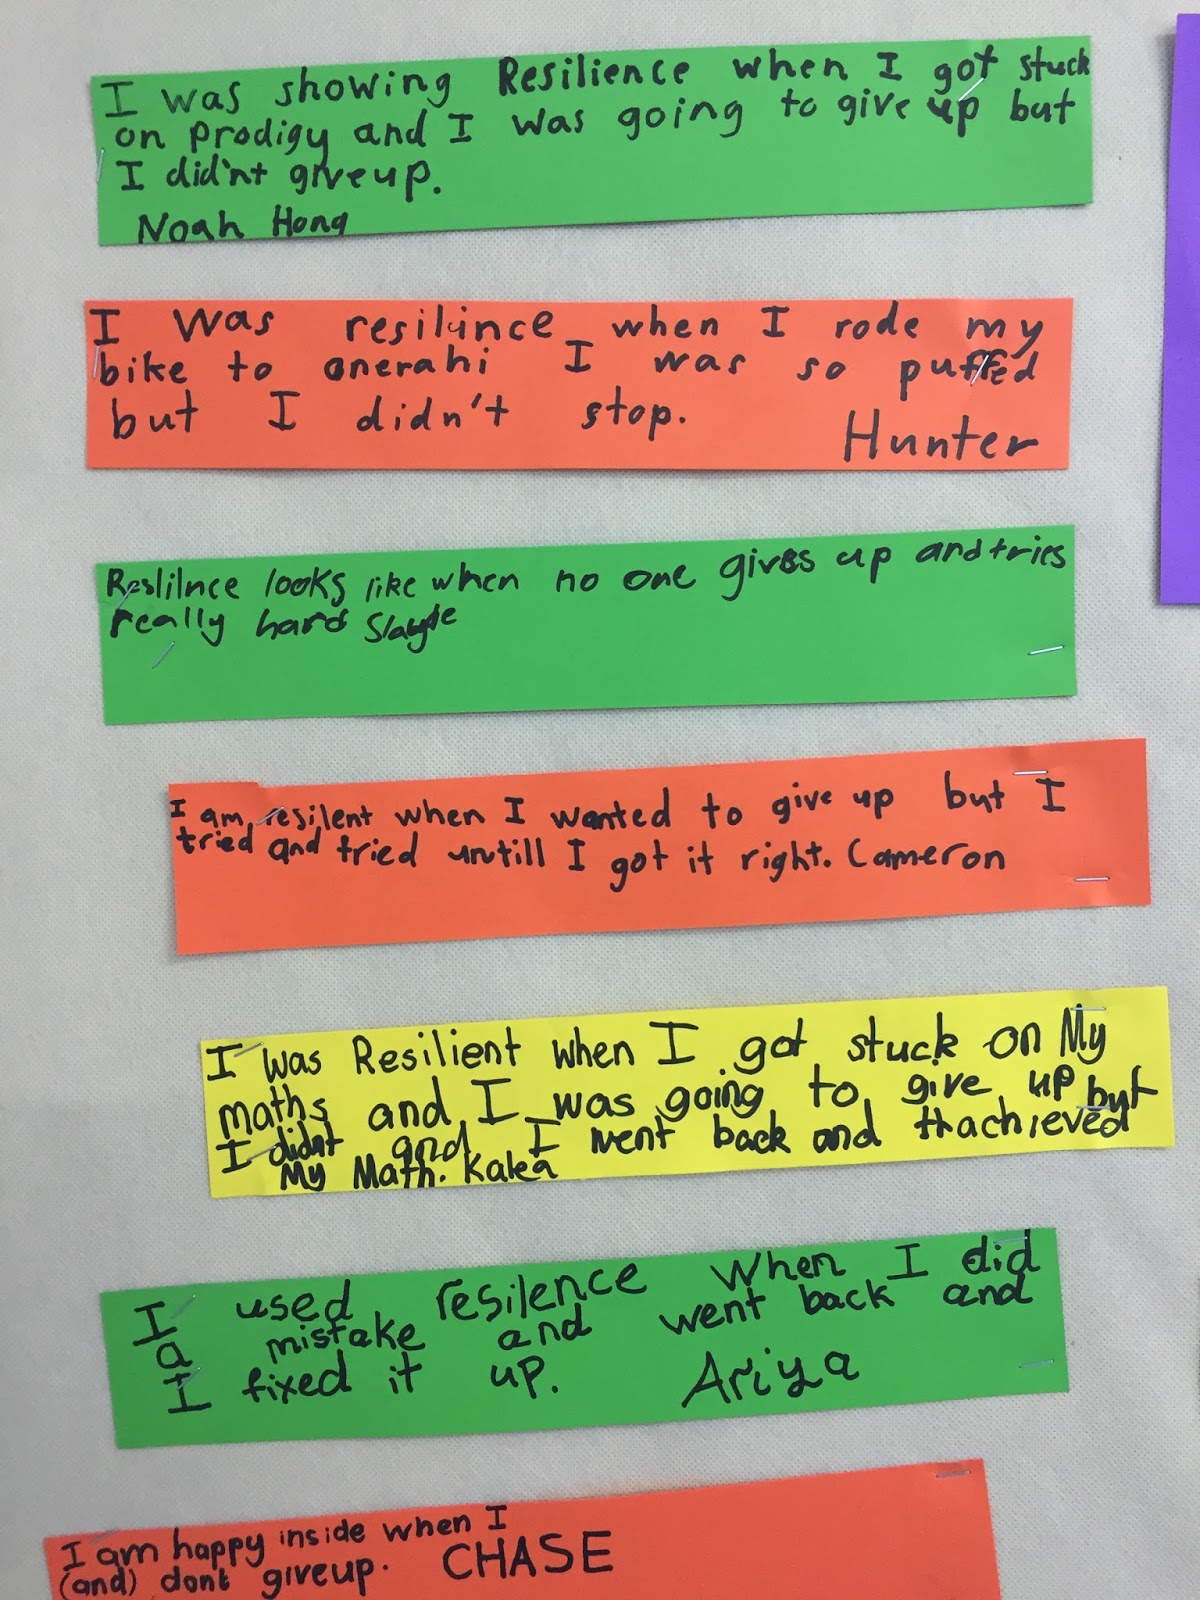 I was showing Resilience when I got stuck
on prodigy and I was going to give up but
I did'nt give up.
Noah Hong
I was resilince when I rode my
bike to onerahi I was so puffed
but I didn't stop.
Hunter
Reslilnce looks like when no one gives up and tries
really hard Slayde
I am resilent when I wanted to give up but I
tried and tried untill I got it right. Cameron
I was Resilient when I got stuck on My
maths and I was going to give up but
I didnt and I went back and thachieved
My Math. Kalea
I used resilence when I did
a mistake and went back and
I fixed it up. Ariya
I am happy inside when I
(and) dont giveup. CHASE